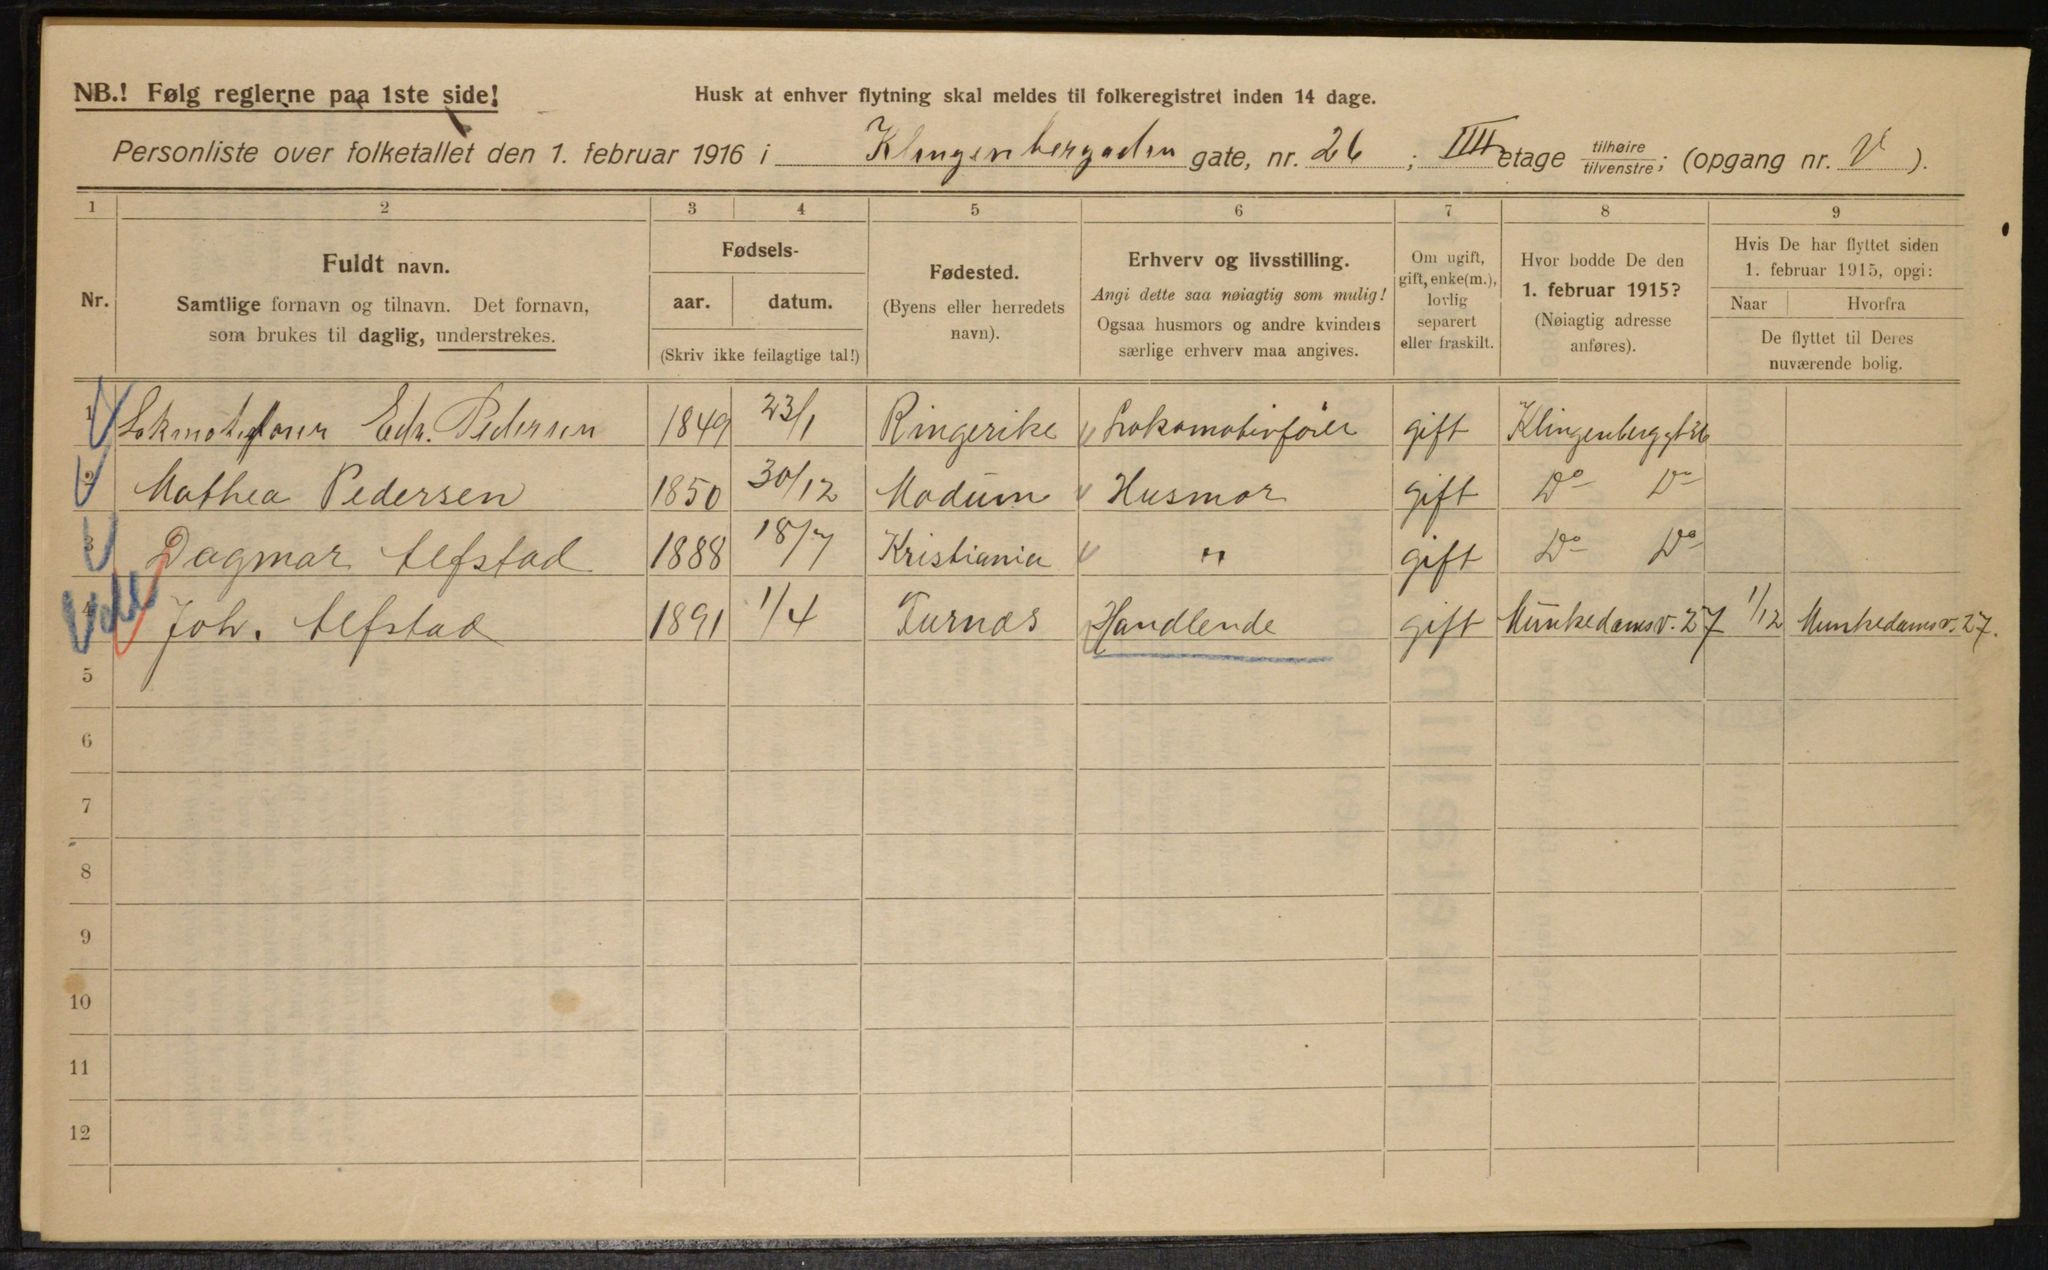 NB.! Følg reglerne paa 1ste side!
Husk at enhver flytning skal meldes til folkeregistret inden 14 dage.
Personliste over folketallet den 1. februar 1916 i Klingenbergaden gate, nr. 26 ; IIII etage tilhøire tilvenstre; (opgang nr. V ).
1 2 3 4 5 6 7 8 9
Nr.
Fuldt navn.
Samtlige fornavn og tilnavn. Det fornavn,
som brukes til daglig, understrekes.
Fødsels-
aar. datum.
(Skriv ikke feilagtige tal!)
Fødested.
(Byens eller herredets
navn).
Erhverv og livsstilling.
Angi dette saa nøiagtig som mulig!
Ogsaa husmors og andre kvinders
særlige erhverv maa angives.
Om ugift,
gift, enke(m.),
lovlig
separert
eller fraskilt.
Hvor bodde De den
1. februar 1915?
(Nøiagtig adresse
anføres).
Hvis De har flyttet siden
1. februar 1915, opgi:
Naar Hvorfra
De flyttet til Deres
nuværende bolig.
1 Edv. Pedersen 1849 23/1 Ringerike Lokomotivfører gift Klingenberggt 26
2 Mathea Pedersen 1850 30/12 Modum Husmor gift Do Do
3 Dagmar Alfstad 1888 18/7 Kristiania " gift Do Do
4 Joh. Alfstad 1891 1/4 Furnæs Handlende gift Munkedamsv. 27 1/12 Munkedamsv. 27.
5
6
7
8
9
10
11
12